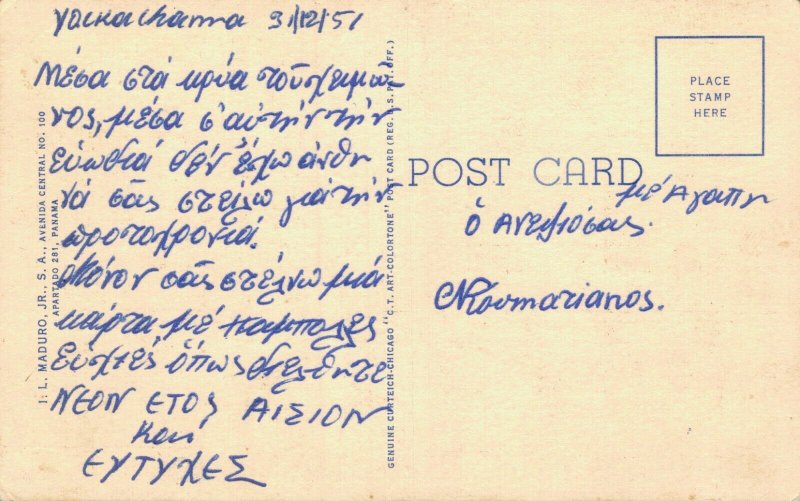 Yokachama 31/12/51
Μέσα στά κρύα τοῦ χειμώ
νος, μέσα σ' αυτήν τήν
εὐωδιά δέν ἔχω άνθη
νά σᾶς στείλω γιά τήν
πρoτοχρονιά.
Μόνον σᾶς στέλνω μιά
κάρτα μέ καμπολες
ευχές όπως διελθητε
ΝΕΟΝ ΕΤΟς ΑΙΣΙΟΝ
και
ΕΥΤΥΧΕΣ
I. L. MADURO, JR., S. A., AVENIDA CENTRAL NO. 100
APARTADO 281, PANAMA
GENUINE CURTEICH-CHICAGO "C.T. ART-COLORTONE" POST CARD (REG. U.S. PAT. OFF.)
POST CARD
PLACE
STAMP
HERE
μέ Αγαπη
ὁ Ανεψιόσας.
Koumarianos.